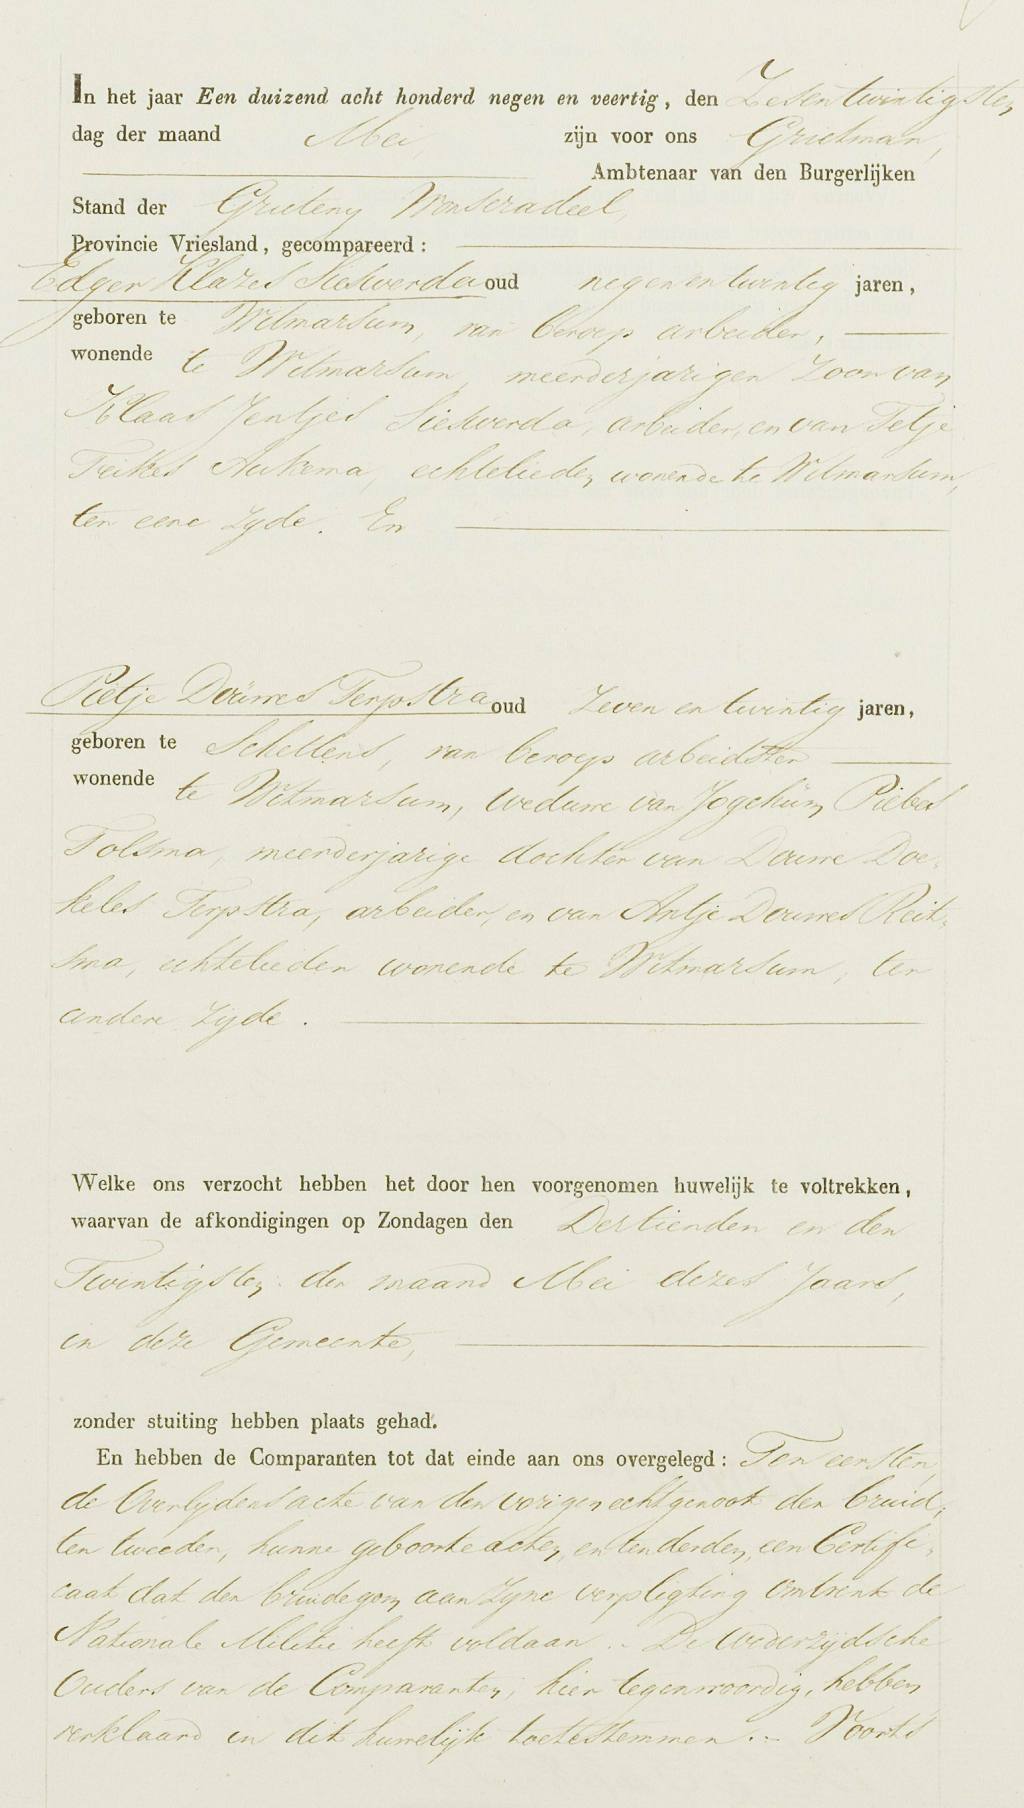 In het jaar Een duizend acht honderd negen en veertig, den Zesentwintigsten
dag der maand Mei, zijn voor ons Grietman,
Ambtenaar van den Burgerlijken
Stand der Grieteny Wonseradeel,
Provincie Vriesland, gecompareerd:
Edger Klazes Sieswerda oud negen en twintig jaren,
geboren te Witmarsum, van beroep arbeider,
wonende te Witmarsum, meerderjarigen Zoon van
Klaas Jentjes Sieswerda, arbeider, en van Tetje
Feikes Aukema, echtelieden wonende te Witmarsum,
ten eene zyde. En
Pietje Douwes Terpstra oud Zeven en twintig jaren,
geboren te Schettens, van beroep arbeidster
wonende te Witmarsum, weduwe van Jogchum Piebes
Tolsma, meerderjarige dochter van Douwe Doe-
keles Terpstra, arbeider, en van Antje Douwes Reit-
sma, echtelieden wonende te Witmarsum, ter
andere zijde.
Welke ons verzocht hebben het door hen voorgenomen huwelijk te voltrekken,
waarvan de afkondigingen op Zondagen den Dertienden en den
Twintigsten der maand Mei dezes Jaars,
in deze Gemeente,
zonder stuiting hebben plaats gehad.
En hebben de Comparanten tot dat einde aan ons overgelegd: Ten eersten,
de Overlydensacte van den vorigen echtgenoot der bruid,
ten tweeden, hunne geboorte acten, en ten derden, een Certifi-
caat dat den bruidegom aan zyne verpligting omtrent de
Nationale Militie heeft voldaan.- De wederzydsche
Ouders van de Comparanten, hier tegenwoordig, hebben
verklaard in dit huwelijk toetestemmen.- Voorts